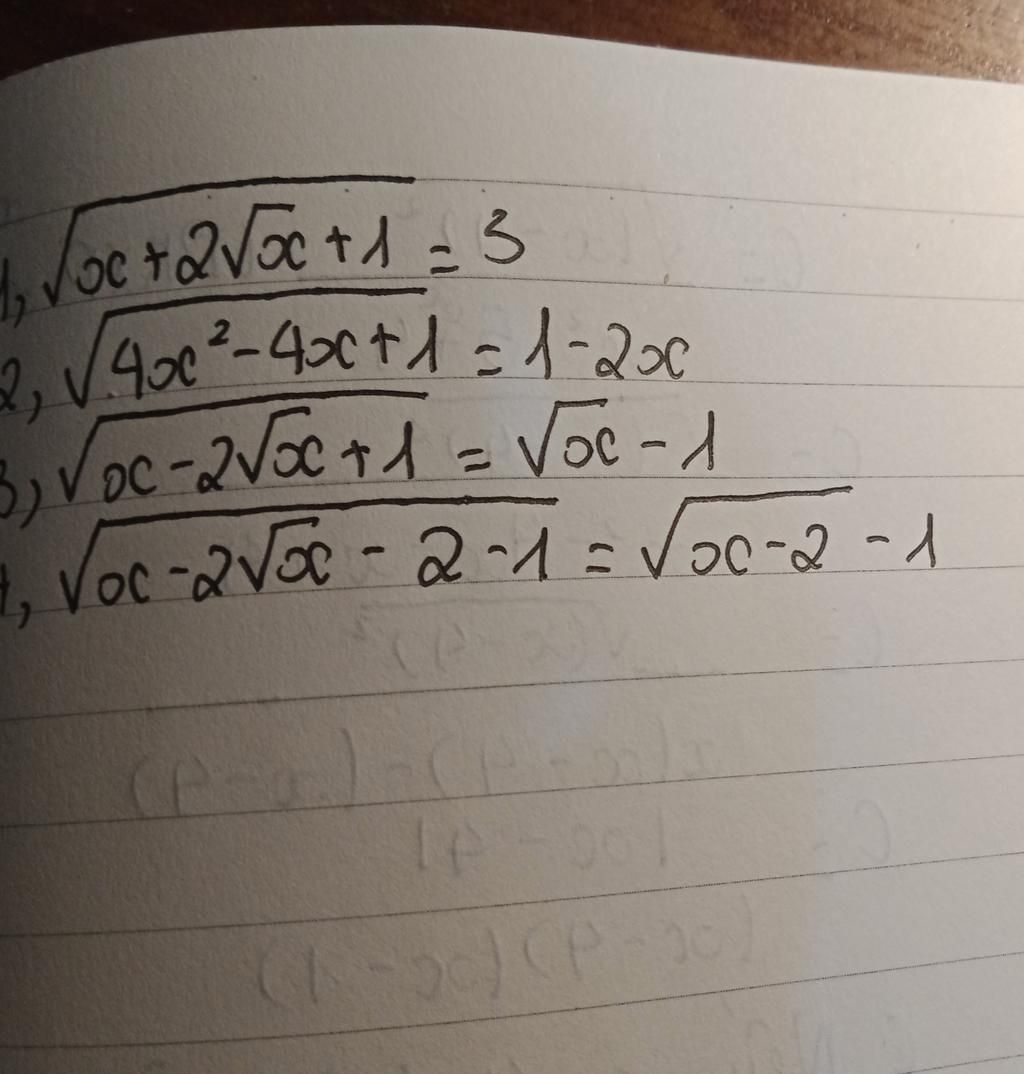 1, √(x+2√x+1) = 3
2, √(4x²-4x+1) = 1-2x
3, √(x-2√x+1) = √x - 1
√(x-2√x - 2 -1) = √(x-2) - 1